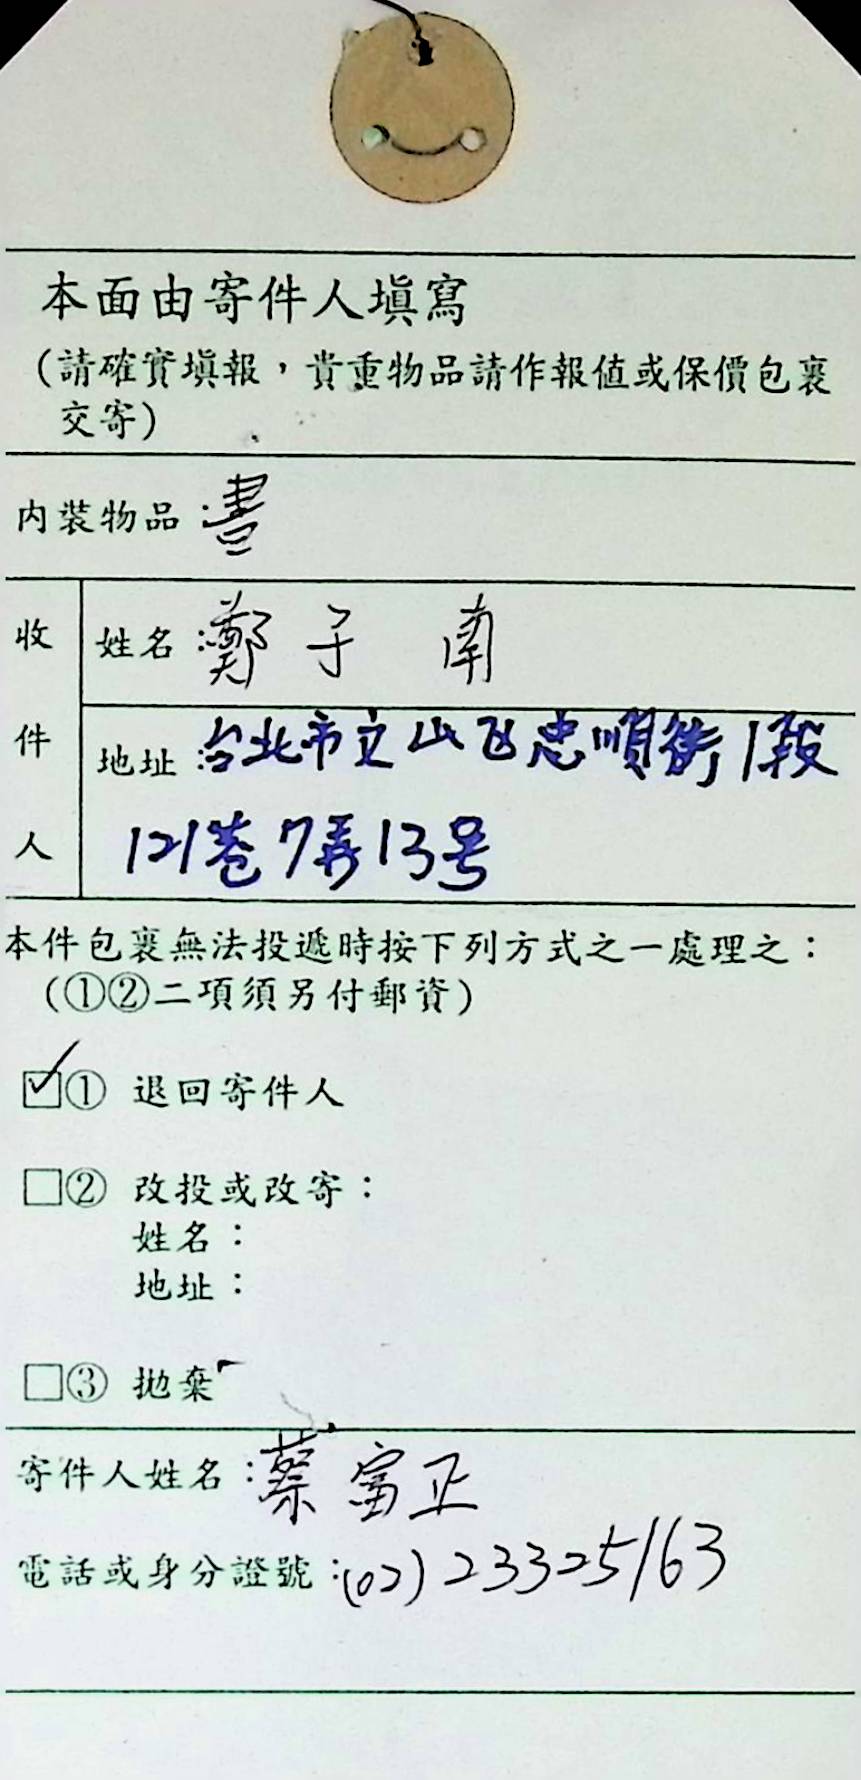 本面由寄件人填寫
(請確實填報，貴重物品請作報值或保價包裹
交寄)
內裝物品：書
收件人
姓名：鄭子南
地址：台北市文山区忠順街1段
121巷7弄13号
本件包裹無法投遞時按下列方式之一處理之：
(①②二項須另付郵資)
☑① 退回寄件人
□② 改投或改寄：
姓名：
地址：
□③ 拋棄
寄件人姓名：蔡富正
電話或身分證號：(02)23325163